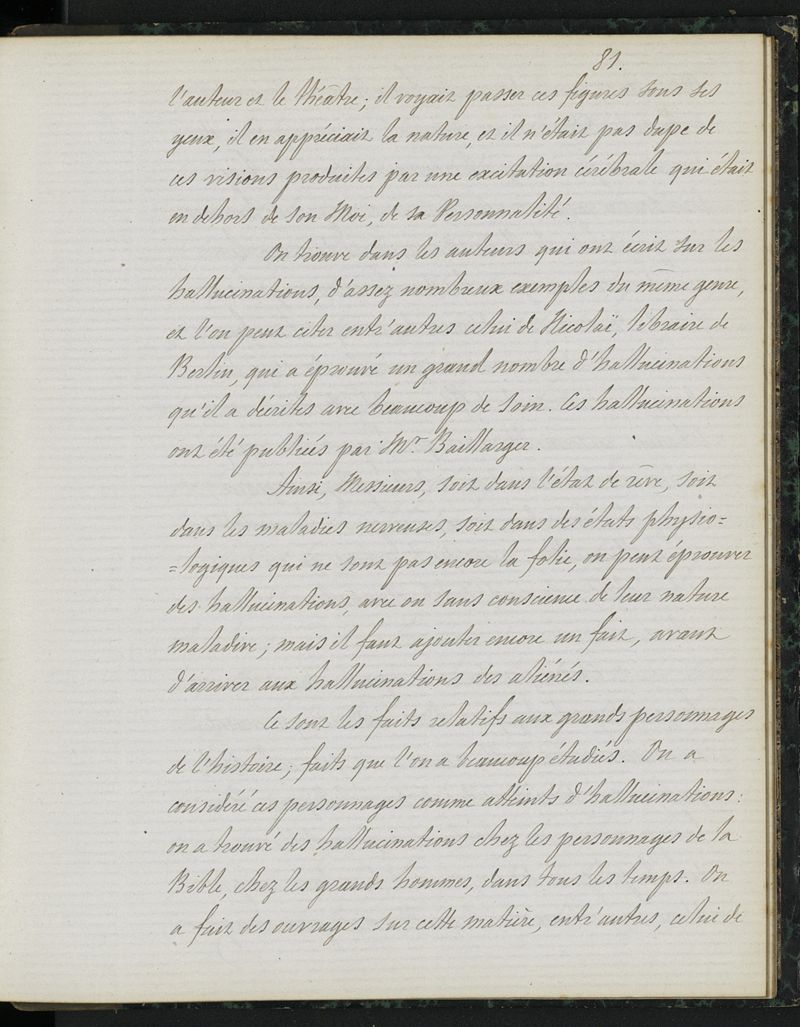 81.
l'auteur et le théâtre; il voyait passer ces figures sous ses
yeux, il en appréciait la nature, et il n'était pas dupe de
ces visions produites par une excitation cérébrale qui était
en dehors de son Moi, de sa Personnalité.
On trouve dans les auteurs qui ont écrit sur les
hallucinations, d'assez nombreux exemples du même genre,
et l'on peut citer entr'autres celui de Nicolaï, libraire de
Berlin, qui a éprouvé un grand nombre d'hallucinations
qu'il a décrites avec beaucoup de soin. Ces hallucinations
ont été publiées par Mr Baillarger.
Ainsi, Messieurs, soit dans l'état de rêve, soit
dans les maladies nerveuses, soit dans des états physio=
=logiques qui ne sont pas encore la folie, on peut éprouver
des hallucinations, avec ou sans conscience de leur nature
maladive; mais il faut ajouter encore un fait, avant
d'arriver aux hallucinations des aliénés.
Ce sont les faits relatifs aux grands personnages
de l'histoire; faits que l'on a beaucoup étudiés. On a
considéré ces personnages comme atteints d'hallucinations:
on a trouvé des hallucinations chez les personnages de la
Bible, chez les grands hommes, dans tous les temps. On
a fait des ouvrages sur cette matière, entr'autres, celui de